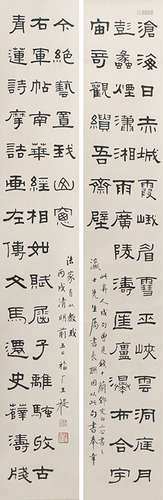 滄海日赤城霞峨嵋雪巫峽雲洞庭月
彭蠡煙瀟湘雨廣陵濤匡廬瀑布合宇
宙奇觀繪吾齋壁
先生屬書長聯因以此句書奉
青蓮詩摩詰畫左傳文馬遷史薛濤牋
右軍帖南華經相如賦屈子離騷收古
今絕藝置我山窗
丙戌清明前五日